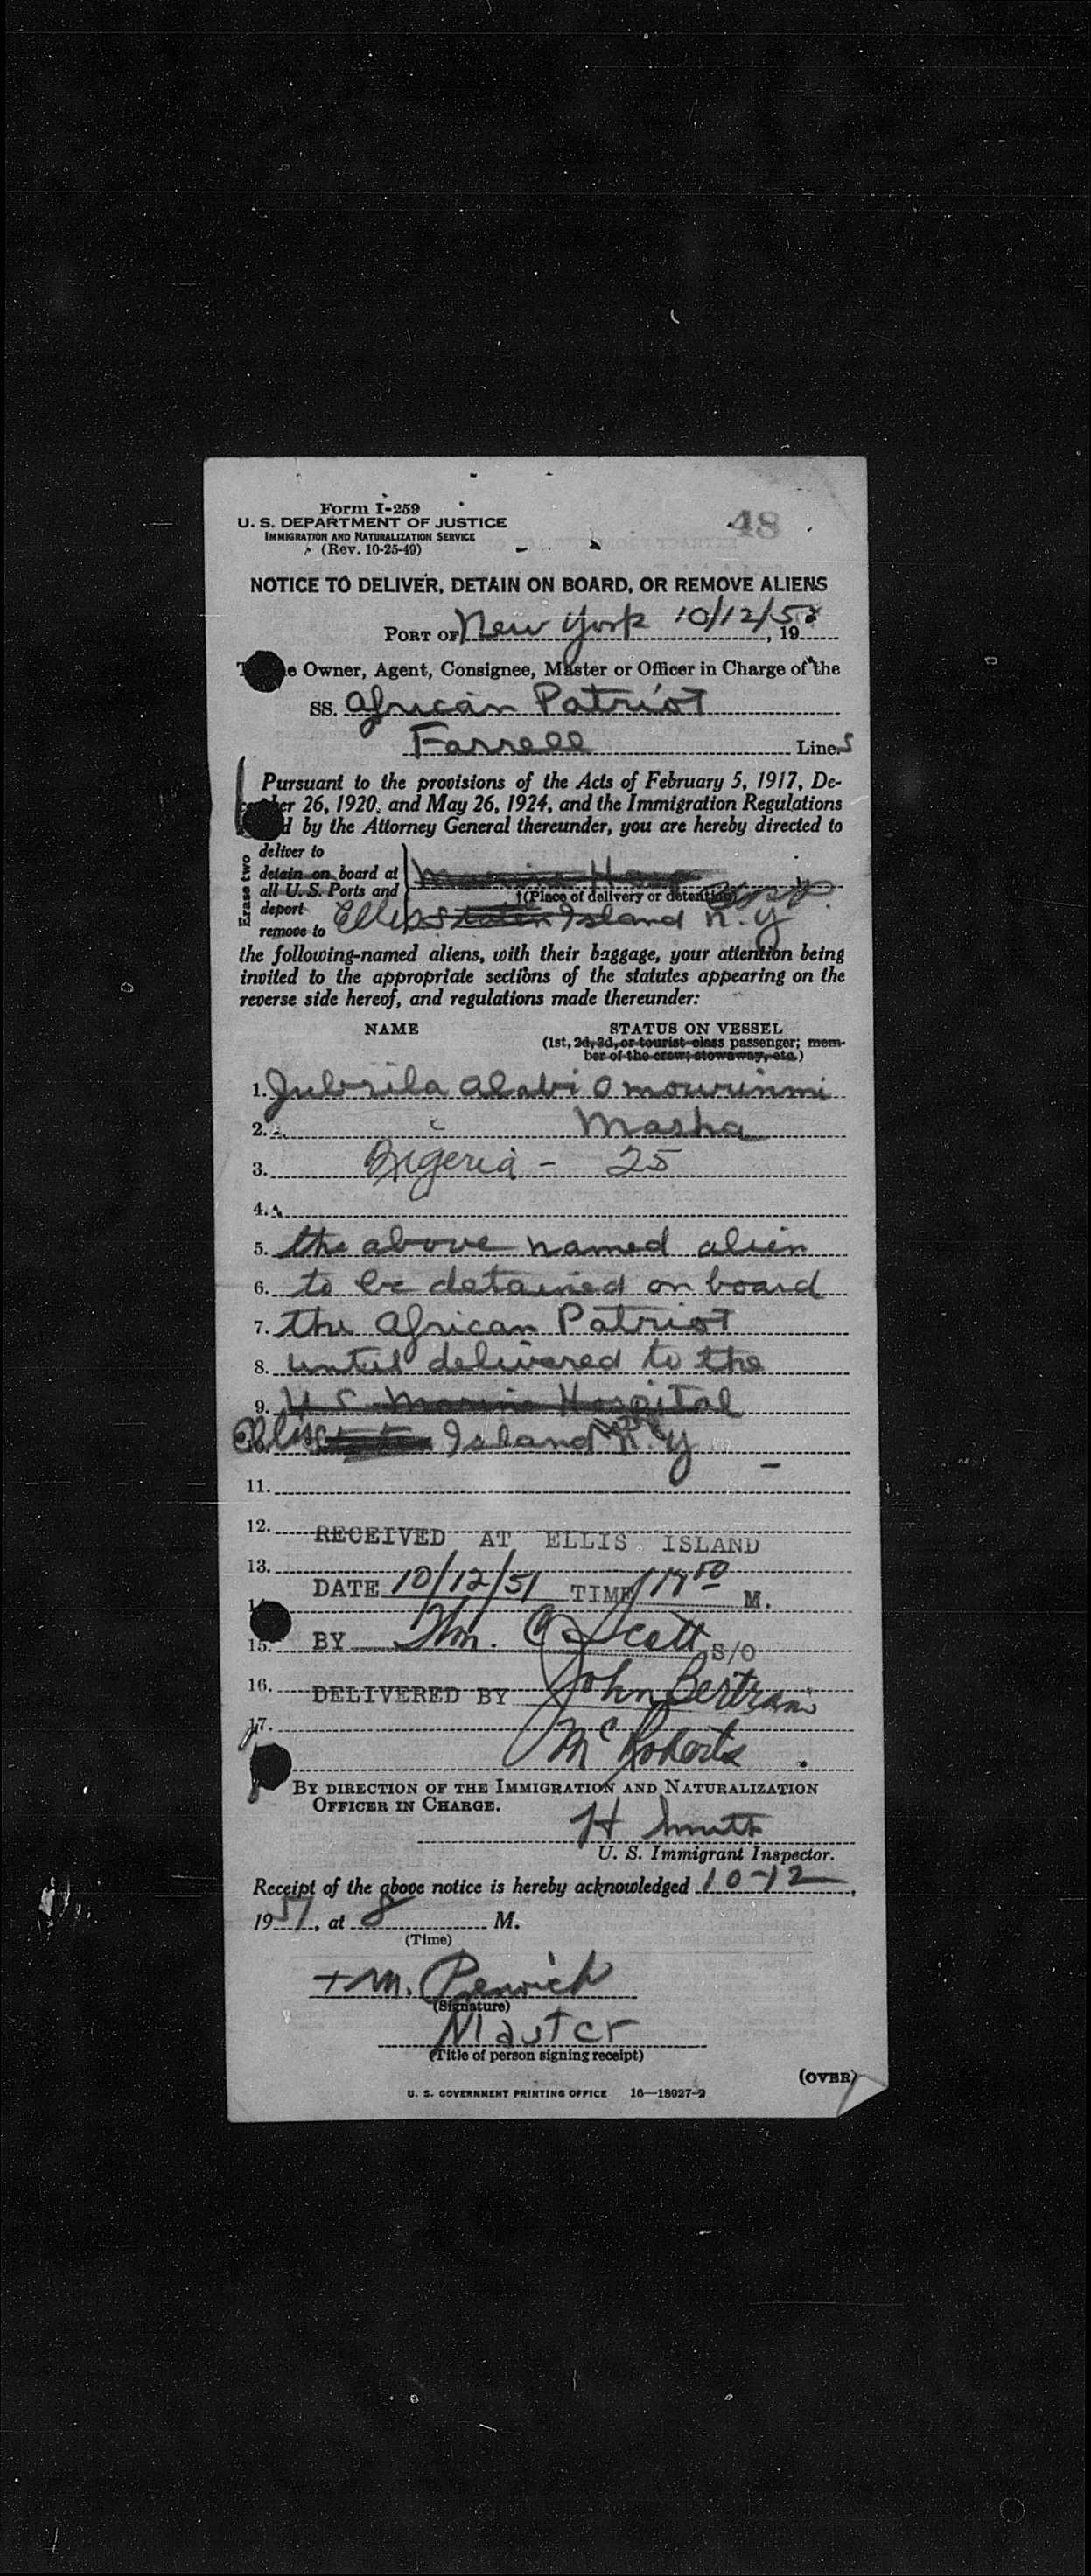 Form I-259
U. S. DEPARTMENT OF JUSTICE
IMMIGRATION AND NATURALIZATION SERVICE
(Rev. 10-25-49)
48
NOTICE TO DELIVER, DETAIN ON BOARD, OR REMOVE ALIENS
PORT OF New York 10/12/51, 19
Owner, Agent, Consignee, Master or Officer in Charge of the
SS. African Patriot
Farrell Lines
Pursuant to the provisions of the Acts of February 5, 1917, De-
er 26, 1920, and May 26, 1924, and the Immigration Regulations
d by the Attorney General thereunder, you are hereby directed to
Erase two
deliver to
detain on board at
all U. S. Ports and
deport
remove to
Marine Hosp
†(Place of delivery or detention)
Ellis Staten Island N.Y
the following-named aliens, with their baggage, your attention being
invited to the appropriate sections of the statutes appearing on the
reverse side hereof, and regulations made thereunder:
NAME
STATUS ON VESSEL
(1st, 2d, 3d, or tourist class passenger; mem-
ber of the crew; stowaway, etc.)
1. Jubrila Alabi Omowunmi
2. Masha
3. Nigeria - 25
4.
5. the above named alien
6. to be detained on board
7. the African Patriot
8. until delivered to the
9. U S Marine Hospital
Ellis Island N.Y
11.
12. RECEIVED AT ELLIS ISLAND
13. DATE 10/12/51 TIME M.
15. BY Wm. C. Scott S/O
16. DELIVERED BY John Bertram
17. McRoberts
BY DIRECTION OF THE IMMIGRATION AND NATURALIZATION
OFFICER IN CHARGE.
H Smith
U. S. Immigrant Inspector.
Receipt of the above notice is hereby acknowledged 10-12,
1951, at 8 M.
(Time)
M. Renwick
(Signature)
Master
(Title of person signing receipt)
(OVER)
U. S. GOVERNMENT PRINTING OFFICE 16—18027-2